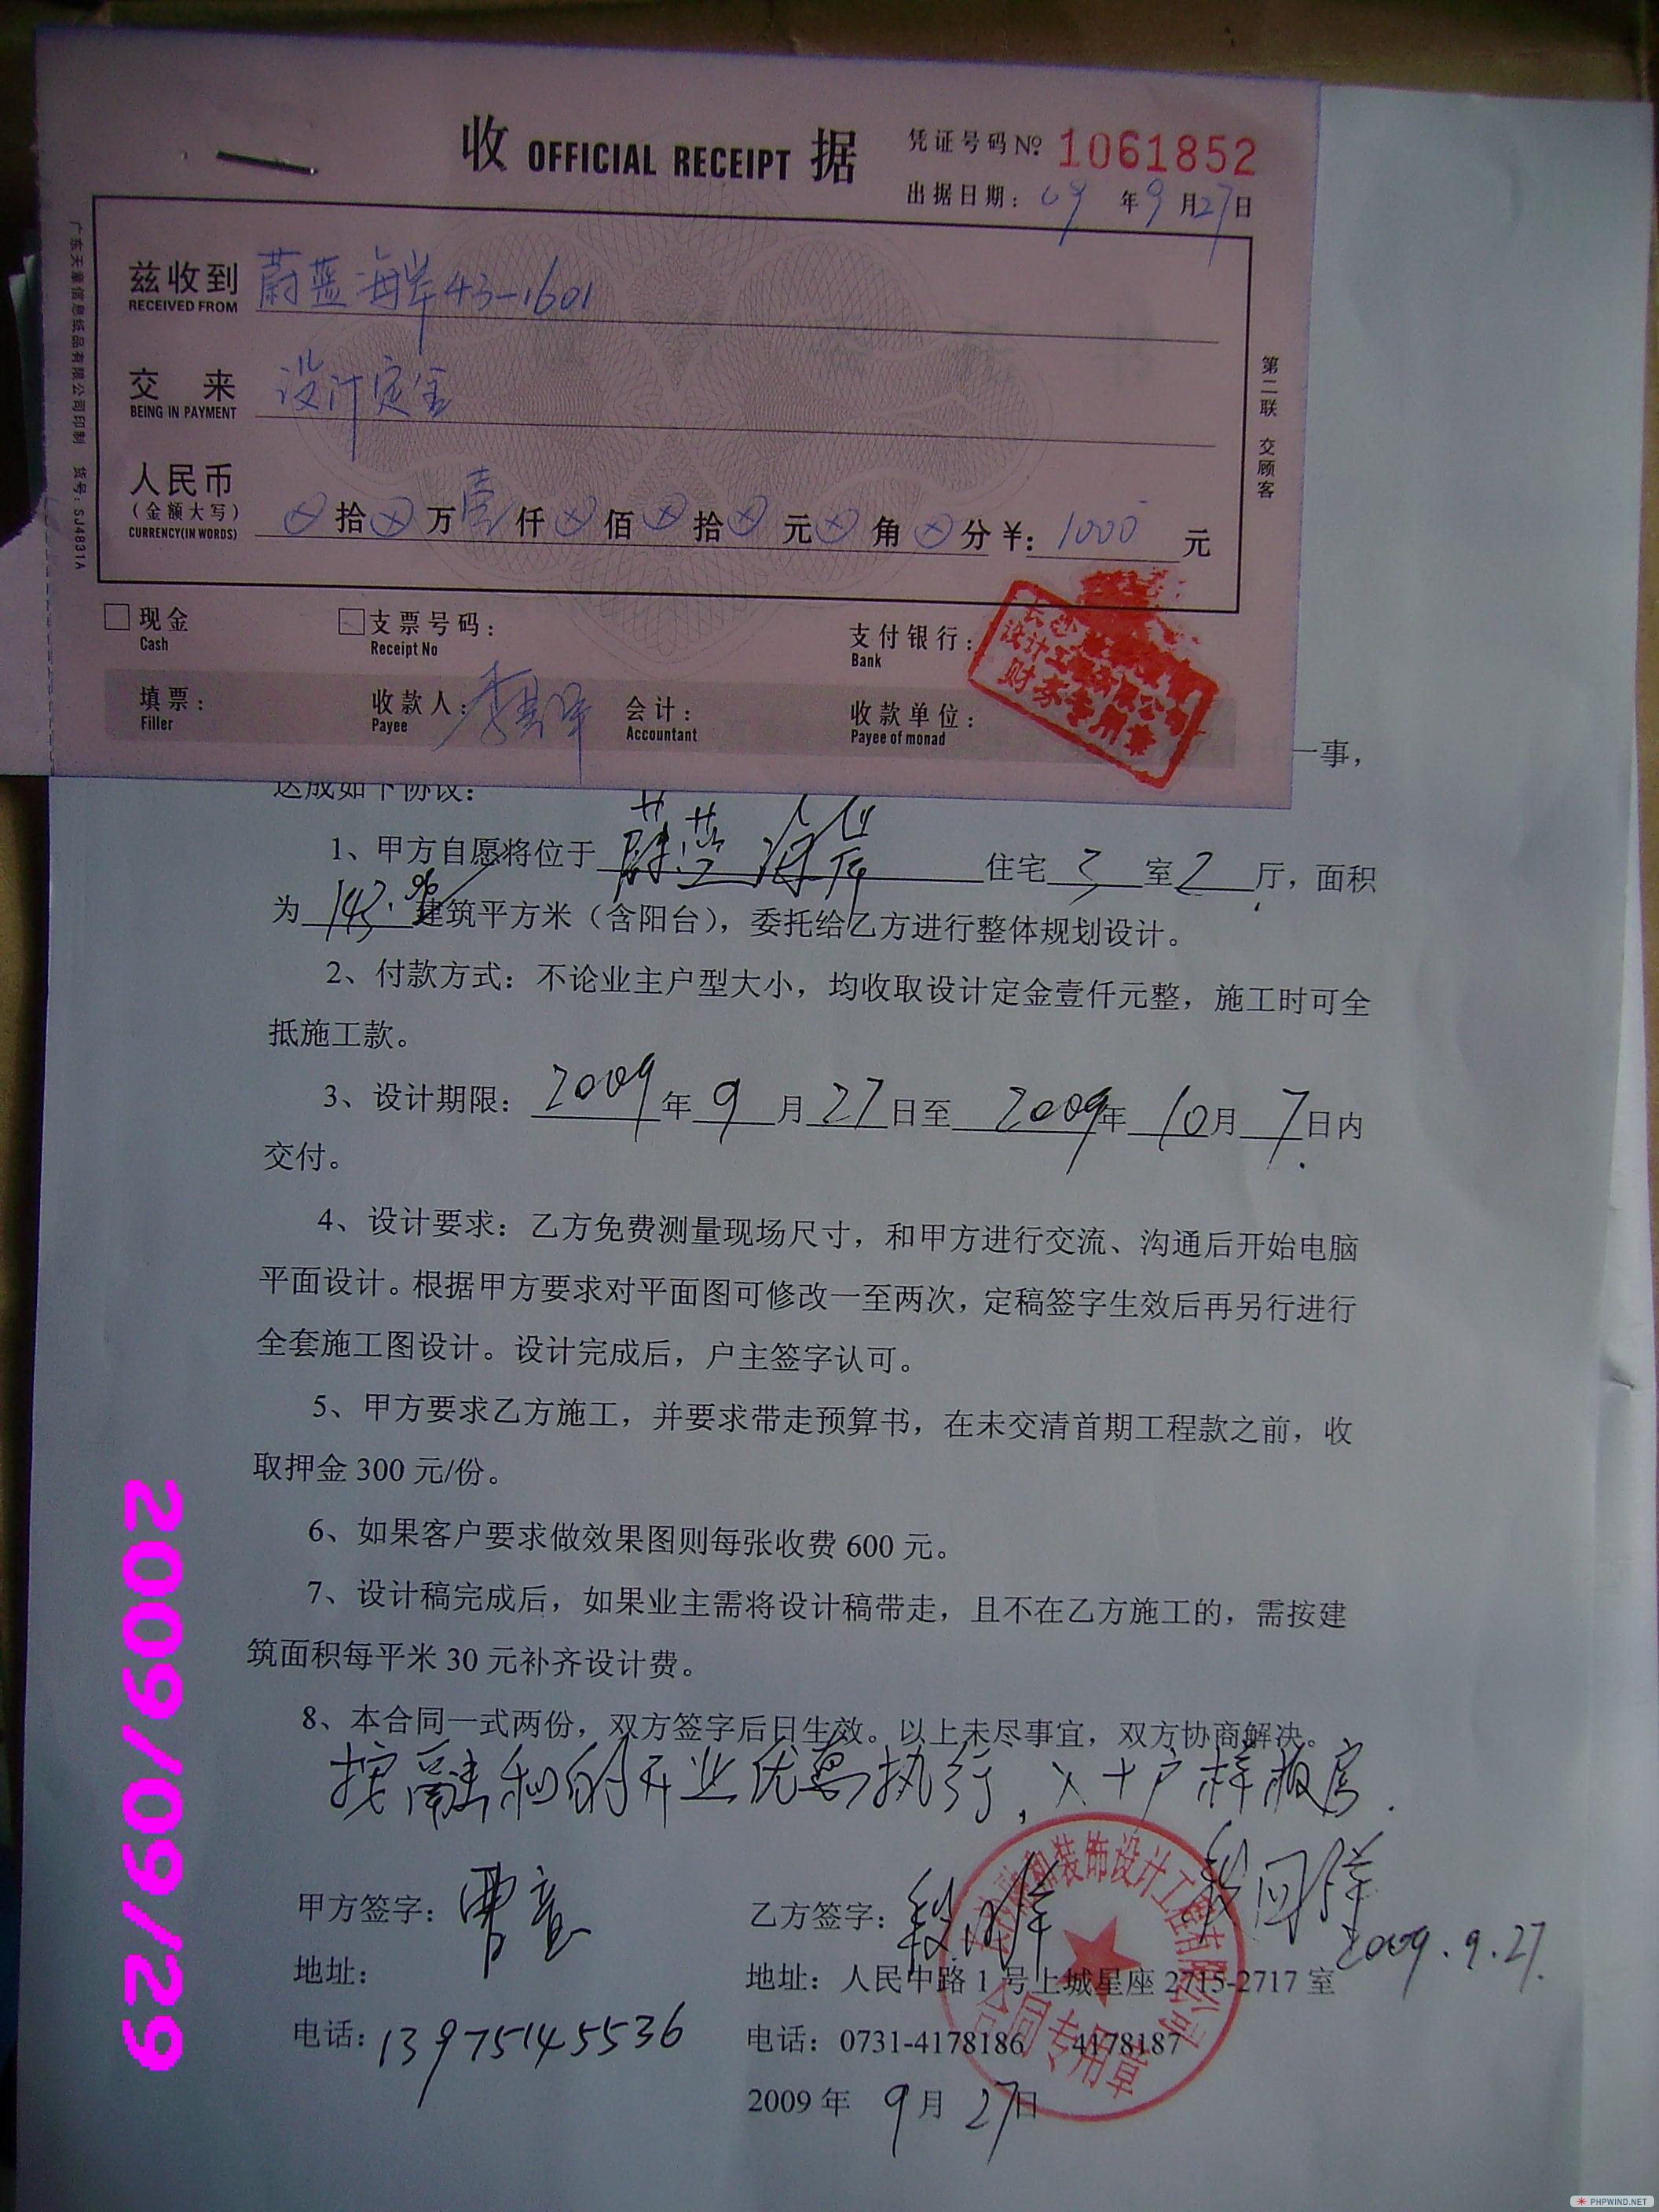 收 OFFICIAL RECEIPT 据
凭证号码 № 1061852
出据日期： 09 年 9 月 27 日
兹收到 蔚蓝海岸43-1601
RECEIVED FROM
交 来 设计定金
BEING IN PAYMENT
人民币
（金额大写）
CURRENCY(IN WORDS)
⊗ 拾 ⊗ 万 壹 仟 ⊗ 佰 ⊗ 拾 ⊗ 元 ⊗ 角 ⊗ 分 ¥： 1000 元
□ 现金 □ 支票号码： 支付银行：
Cash Receipt No Bank
填票： 收款人： 会计： 收款单位：
Filler Payee Accountant Payee of monad
设计工程有限公司
财务专用章
第二联 交顾客
广东天章信息纸品有限公司印制 货号：SJ4831A
一事，
达成如下协议：
1、甲方自愿将位于 蔚蓝海岸 住宅 3 室 2 厅，面积
为 143. 建筑平方米（含阳台），委托给乙方进行整体规划设计。
2、付款方式：不论业主户型大小，均收取设计定金壹仟元整，施工时可全
抵施工款。
3、设计期限： 2009 年 9 月 27 日至 2009 年 10 月 7 日内
交付。
4、设计要求：乙方免费测量现场尺寸，和甲方进行交流、沟通后开始电脑
平面设计。根据甲方要求对平面图可修改一至两次，定稿签字生效后再另行进行
全套施工图设计。设计完成后，户主签字认可。
5、甲方要求乙方施工，并要求带走预算书，在未交清首期工程款之前，收
取押金 300 元/份。
6、如果客户要求做效果图则每张收费 600 元。
7、设计稿完成后，如果业主需将设计稿带走，且不在乙方施工的，需按建
筑面积每平米 30 元补齐设计费。
8、本合同一式两份，双方签字后日生效。以上未尽事宜，双方协商解决。
按融和的开业优惠执行， 户样板房.
甲方签字： 曹 乙方签字： 段
2009.9.27.
地址： 地址：人民中路 1 号上城星座 2715-2717 室
电话： 13975145536 电话：0731-4178186 4178187
2009 年 9 月 27 日
融和装饰设计工程有限公司
合同专用章
2009/09/29
PHPWIND.NET